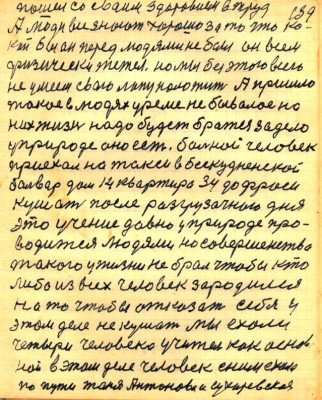 пошел со своим здоровием в труд
139
А люди все знают хорошо за то что ко-
кой бы он перед людями не был он всем
физически тетел. но мы без этого всего
не умеем свою
такое в людях у реме не бывалое но
на жизнь надо будет братся за дело
у природе оно есть. больной человек
приехал на такси в бескудненской
болвар дом 14 квартира 34 до федоси
кушат после разгрузачного дня
это учение давно у природе про-
водится людями, но совершенства
такого у жизни не брал чтобы кто
либо из всех человек зародился
на то чтобы отказат себя у
этом деле не кушат мы ехоли
четыри человека учител как основ
ной в этом деле человек с ним ехоли
по пути таня Антоновна сухаревская